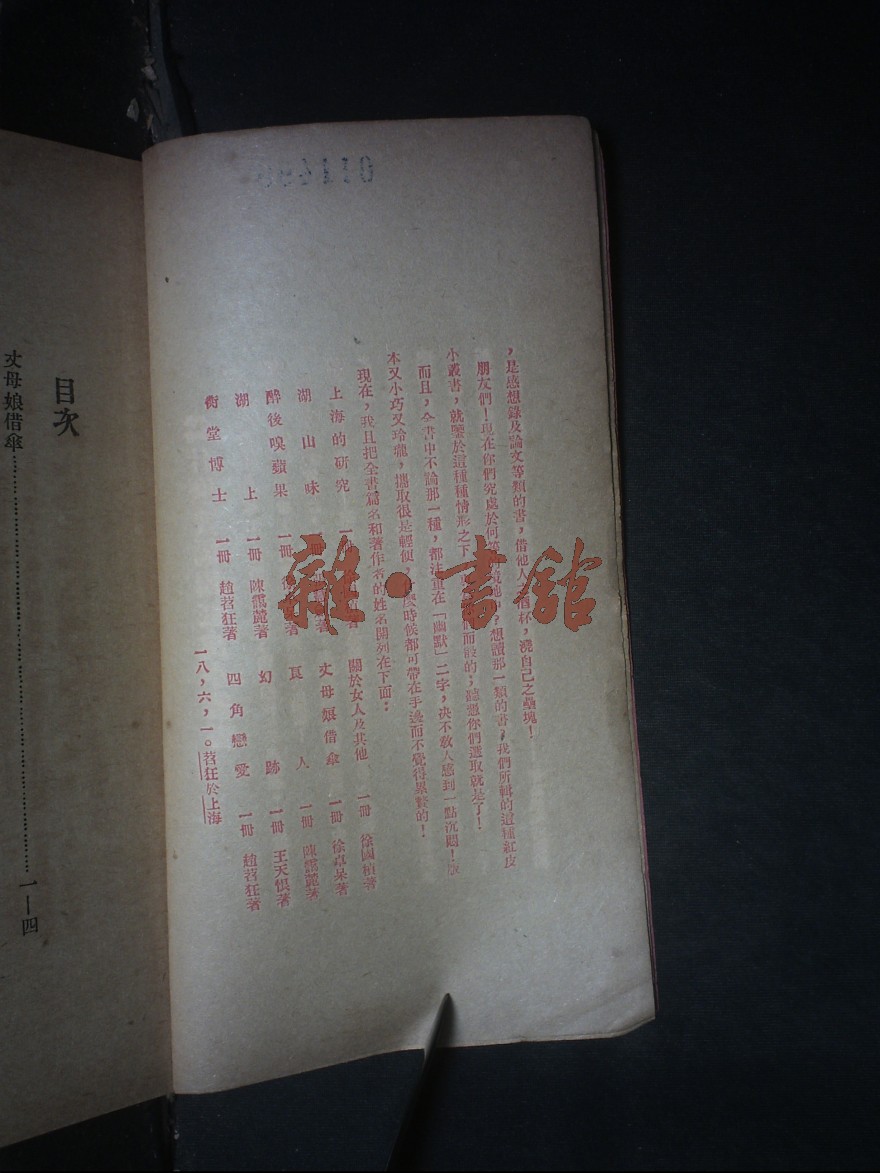 ，是感想錄及論文等類的書，借他人酒杯，澆自己之壘塊！
朋友們！現在你們究處於何等境地中？想讀那一類的書，我們所輯的這種紅皮
小叢書，就鑒於這種種情形之下而設的；聽憑你們選取就是了！
而且，全書中不論那一種，都注重在「幽默」二字，決不敎人感到一點沉悶！版
本又小巧又玲瓏，攜取很是輕便，什麼時候都可帶在手邊而不覺得累贅的！
現在，我且把全書篇名和著作者的姓名開列在下面：
上海的研究 一冊 著 關於女人及其他 一冊 徐國楨著
湖山味 一冊 著 丈母娘借傘 一冊 徐卓呆著
醉後嗅蘋果 一冊 徐 著 良人 一冊 陳靄麓著
湖上 一冊 陳靄麓著 幻跡 一冊 王天恨著
衖堂博士 一冊 趙苕狂著 四角戀愛 一冊 趙苕狂著
一八，六，一。苕狂於上海
目次
丈母娘借傘……一—四
雜·書館